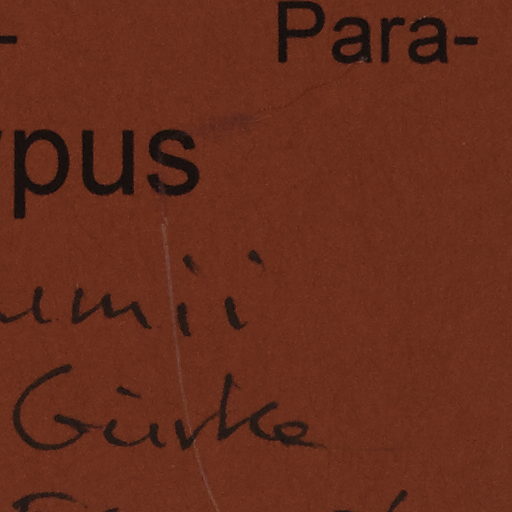 - Para-
ypus
umii
Gürke